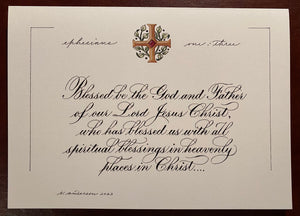 ephesians one : three
Blessed be the God and Father
of our Lord Jesus Christ,
who has blessed us with all
spiritual blessings in heavenly
places in Christ....